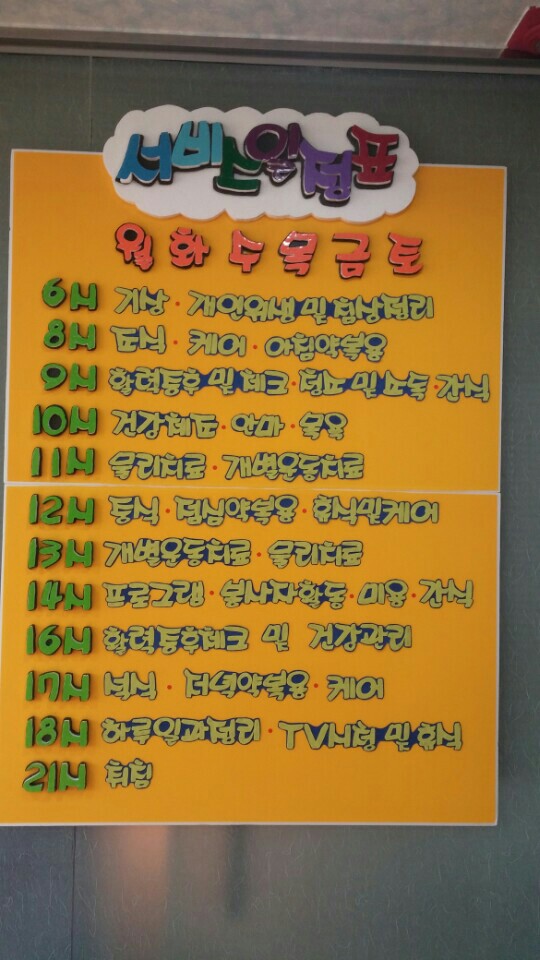 서비스일정표
월 화 수 목 금 토
6시 기상 · 개인위생 및 침상정리
8시 조식 · 케어 · 아침약복용
9시 활력증후 및 체크 · 청소 및 소독 · 간식
10시 건강체조 · 안마 · 목욕
11시 물리치료 · 개별운동치료
12시 중식 · 점심약복용 · 휴식및케어
13시 개별운동치료 · 물리치료
14시 프로그램 · 봉사자활동 · 미용 · 간식
16시 활력증후체크 및 건강관리
17시 석식 · 저녁약복용 · 케어
18시 하루일과정리 · TV시청 및 휴식
21시 취침